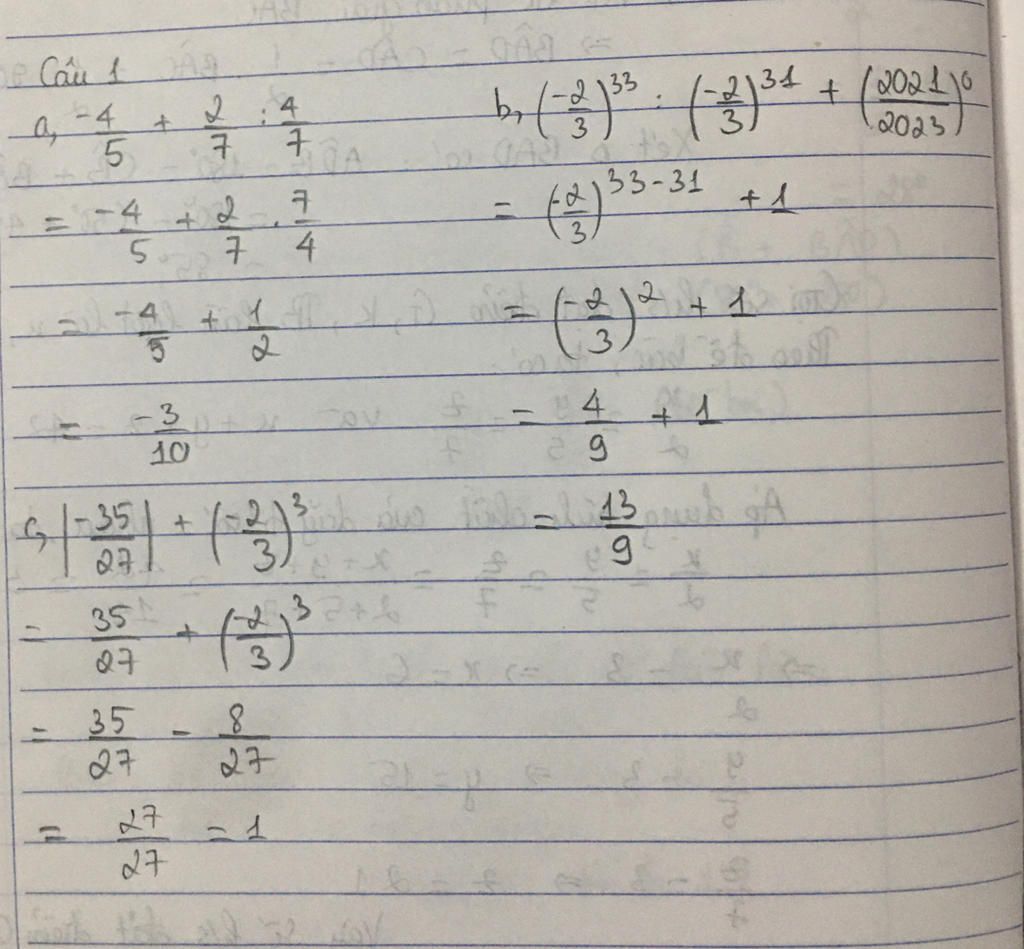 Câu 1
a, -4/5 + 2/7 : 4/7
= -4/5 + 2/7 . 7/4
= -4/5 + 1/2
= -3/10
b, (-2/3)^33 : (-2/3)^31 + (2021/2023)^0
= (-2/3)^33-31 + 1
= (-2/3)^2 + 1
= 4/9 + 1
= 13/9
c, |-35/27| + (-2/3)^3
= 35/27 + (-2/3)^3
= 35/27 - 8/27
= 27/27 = 1